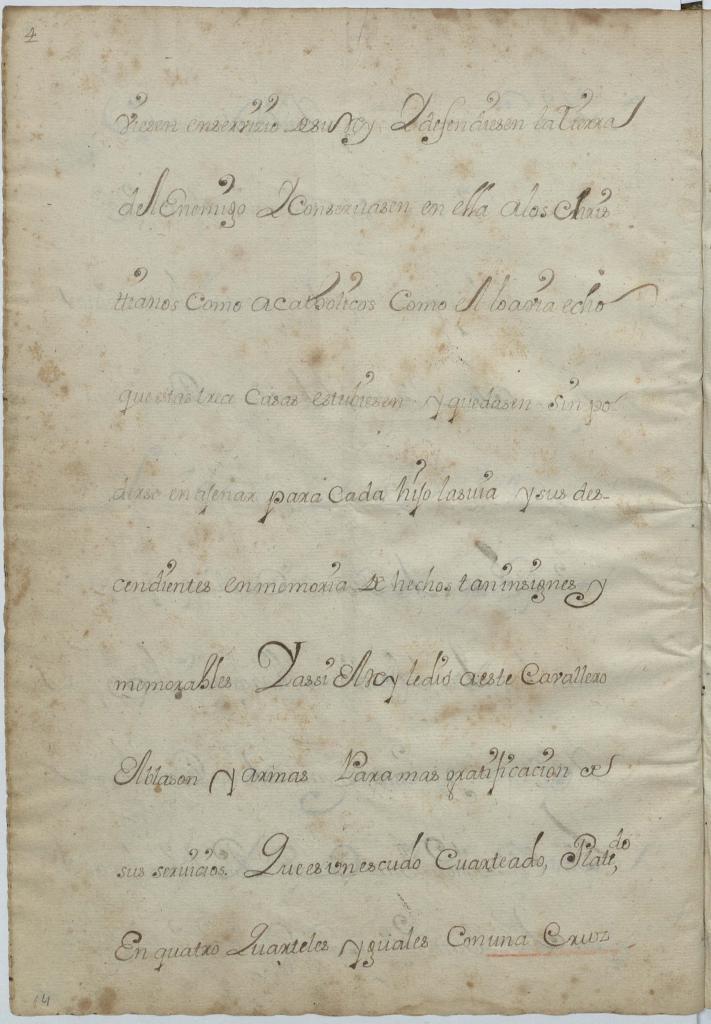 4
viesen enservizio de su Rey Y defendiesen la tierra
del Enemigo Y Conservasen en ella a los Chris
ttianos Como a catholicos Como el lo avia echo
que estas trea Casas estubiesen y quedasen sin po-
derse en ajenar para Cada hijo la suia y sus des-
cendientes en memoria de hechos tan insignes y
memorables Y assi el Rey le dio a este Cavallero
el blason y armas Para mas gratificacion de
sus servicios. Que es un escudo Cuarteado, Plate,do
En quatro Quarteles yguales Con una Cruz
14